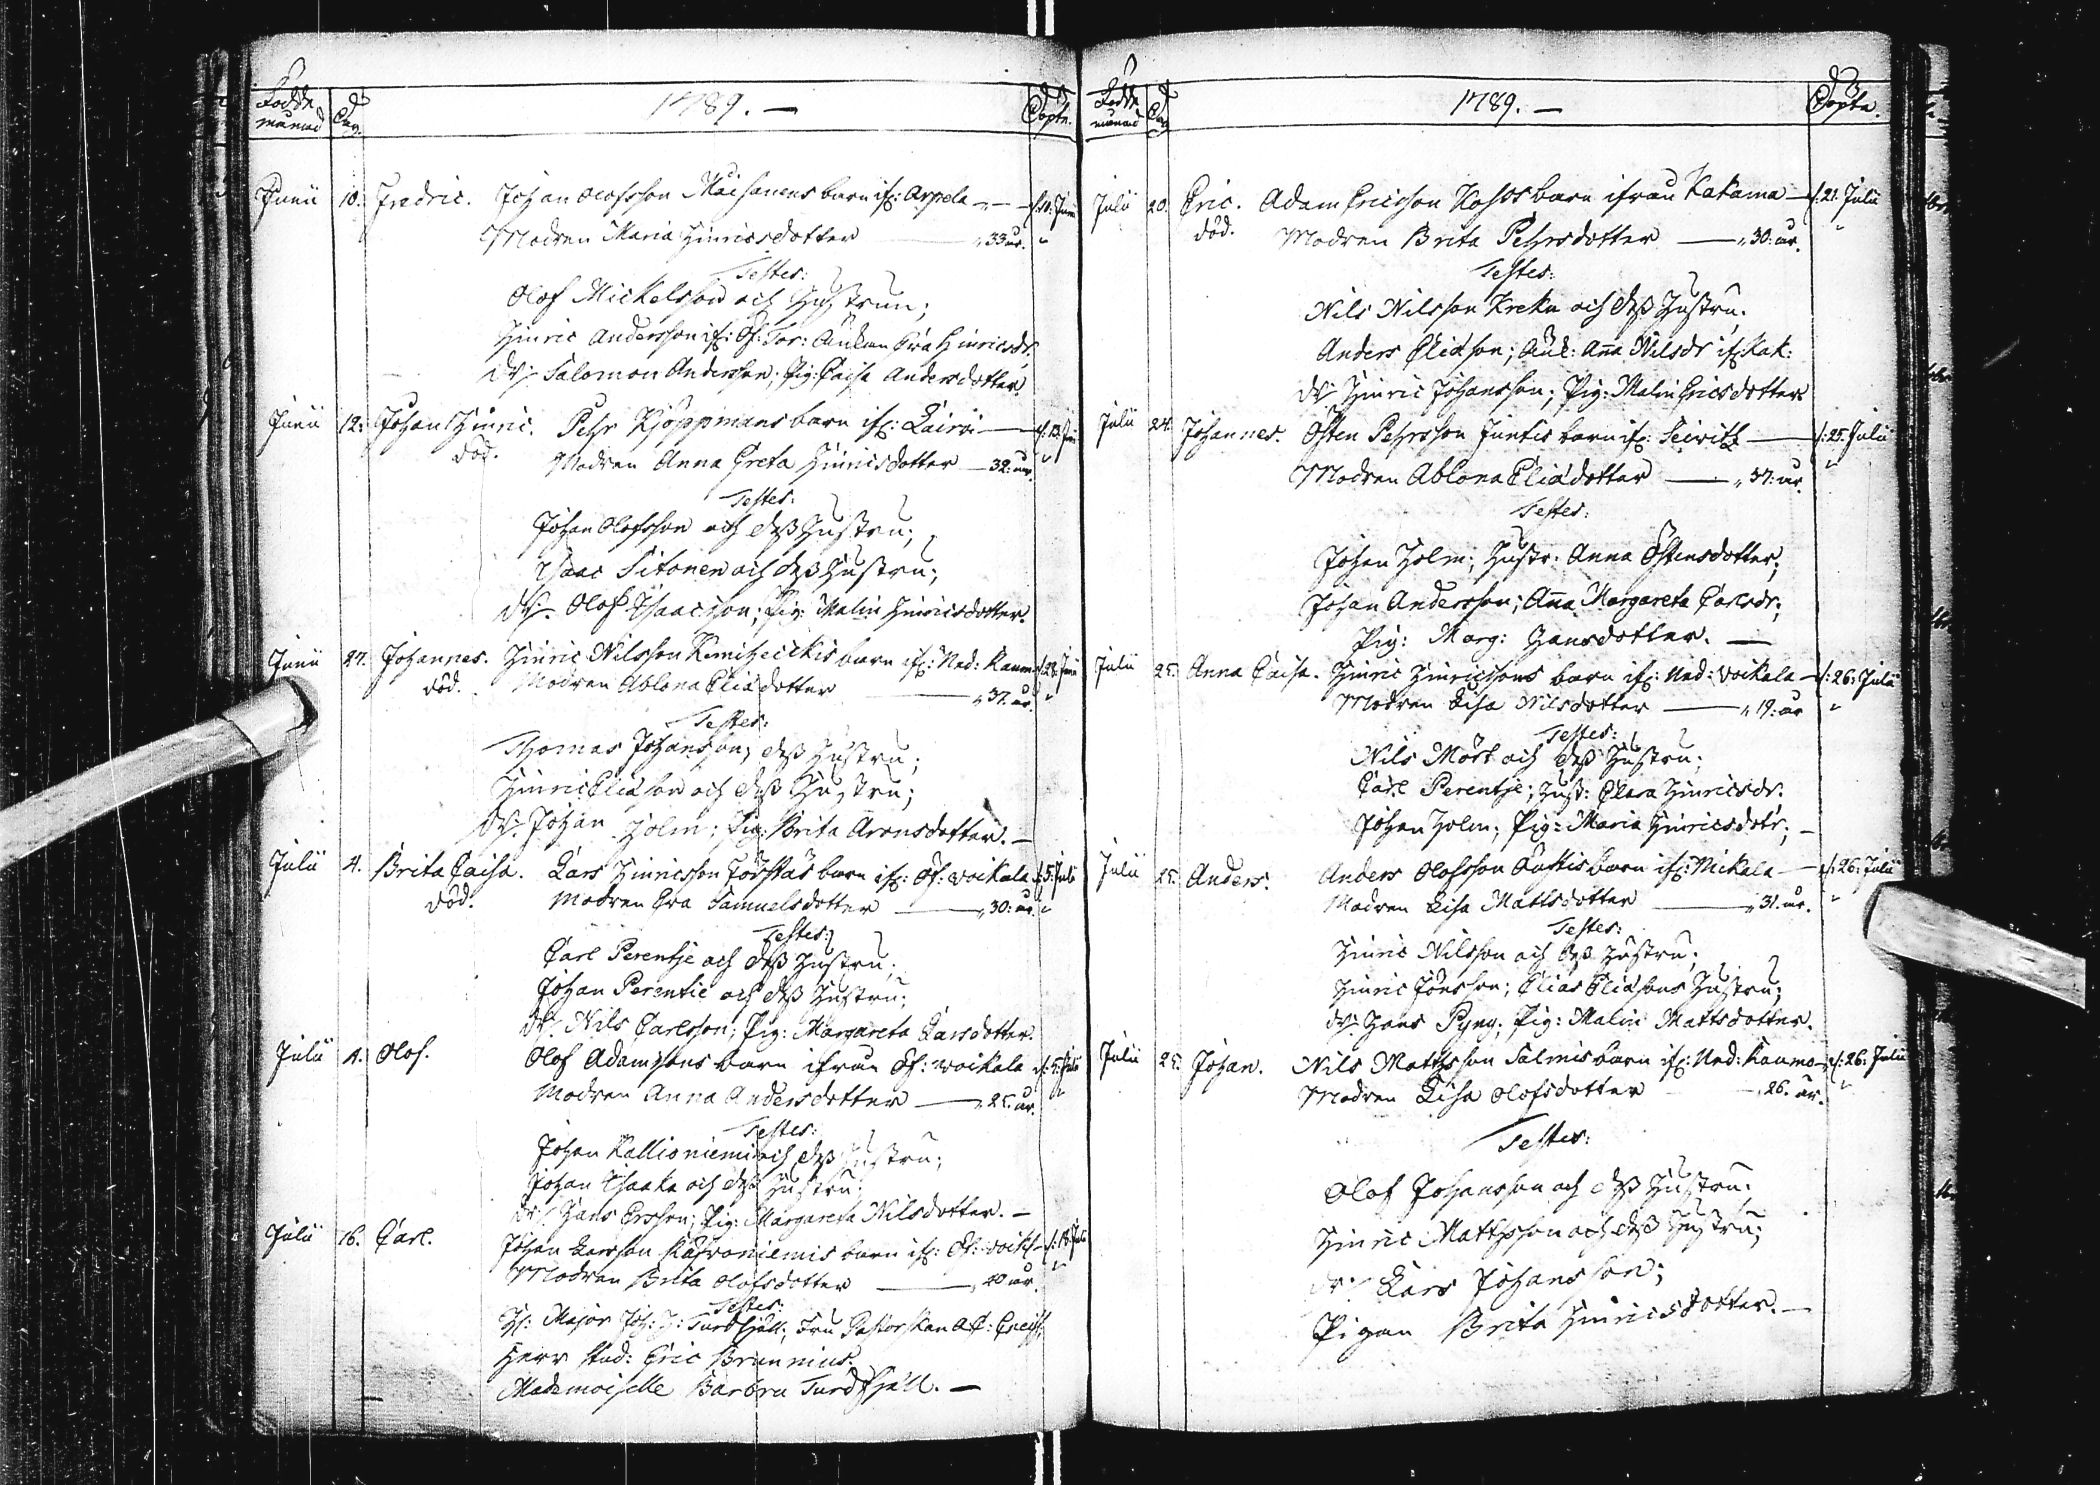 Födde månad Dag 1789. — Döpte.
Junii 10. Fredric. Johan Olofsson barn ifr: Arpela — d: 10. Junii
Modren Maria Hinricsdotter — 33 år. "
Testes:
Olof Mickelsson och Hustrun;
Hinric Andersson ifr: Öf: Tor: Änkan Hinricsdr.
Dr: Salomon Andersson; Pig: Caisa Andersdotter.
Junii 12. Johan Hinric. Pehr Kjöppmans barn ifr: Lairi — d: 13. Junii
död. Modren Anna Greta Hinricsdotter — 32: år. "
Testes:
Johan Olofsson och dess Hustru;
Isaac Sitonen och dess Hustru;
Dr: Olof Isaacson; Pig: Malin Hinricsdotter.
Junii 27. Johannes. Hinric Nilsson barn ifr: Ned: Kaumo d: 28. Junii
död. Modren Ablona Eliædotter — 37. år. "
Testes:
Thomas Johansson, dess Hustru;
Hinric Eliæson och dess Hustru;
Dr: Johan Holm; Pig: Brita Aronsdotter. —
Julii 4. Brita Caisa. Lars Hinricsson barn ifr: Öf: Voikala d: 5. Julii
död. Modren Eva Samuelsdotter — 30: år. "
Testes:
Carl Perentje och dess Hustru;
Johan Perentie och dess Hustru;
Dr: Nils Carlsson; Pig: Margareta Larsdotter.
Julii 4. Olof. Olof Adamssons barn ifrån Öf: Woikala d: 5. Julii
Modren Anna Andersdotter — 25. år. "
Testes:
Johan Kallioniemi och dess Hustru;
Johan Isaaka och dess Hustru;
Dr: Hans Ersson; Pig: Margareta Nilsdotter. —
Julii 16. Carl. Johan Larsson barn ifr: Öf: Voik: — d: 18. Julii
Modren Brita Olofsdotter — 40 år. "
Testes:
H: Major Joh: H: Turdfjäll; Fru Pastorskan
Herr Stud: Eric Brunnius.
Mademoiselle Barbra Turdfjäll. —
Födde månad Dag 1789. — Döpte.
Julii 20. Eric. Adam Ericsson barn ifrån Kakama — d: 21. Julii
död. Modren Brita Pehrsdotter — 30: år. "
Testes:
Nils Nilsson Kreku och dess Hustru.
Anders Eliæson; Änk: Anna Nilsdr ifr: Kak:
Dr: Hinric Johansson; Pig: Malin Ericsdotter
Julii 24. Johannes. Östen Pehrsson Juntis barn ifr: Seivits — d: 25. Julii
Modren Ablona Eliædotter — 37: år. "
Testes:
Johan Holm; Hustr: Anna Östensdotter;
Johan Andersson; Anna Margareta Carlsdr;
Pig: Marg: Hansdotter. —
Julii 25. Anna Caisa. Hinric Hinricssons barn ifr: Ned: Voikala — d: 26: Julii
Modren Lisa Nilsdotter — 19: år "
Testes:
Nils Mört och dess Hustru;
Carl Perentje; Hust: Clara Hinricsdr.
Johan Holm; Pig: Maria Hinricsdotr; —
Julii 25. Anders. Anders Olofsson barn ifr: Mickala — d: 26: Julii
Modren Lisa Mattsdotter — 31. år. "
Testes:
Hinric Nilsson och dess Hustru;
Hinric Jönsson; Elias Eliæsons Hustru;
Dr: Hans Pyny; Pig: Malin Mattsdotter.
Julii 25. Johan. Nils Mattsson Salmis barn ifr: Ned: Kaumo — d: 26: Julii
Modren Lisa Olofsdotter — 26. år. "
Testes:
Olof Johansson och dess Hustru;
Hinric Mattsson och dess Hustru;
Dr: Lars Johansson;
Pigan Brita Hinricsdotter. —